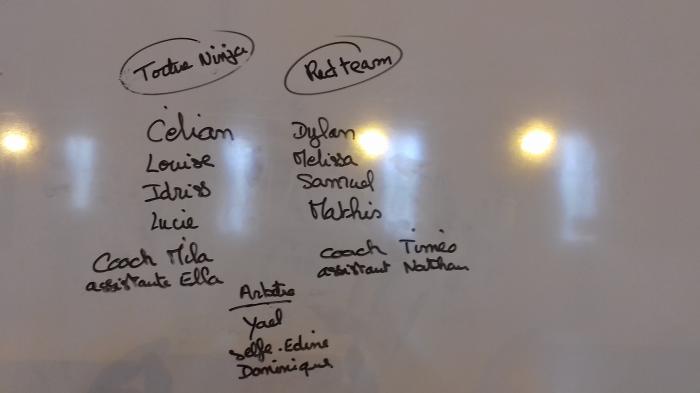 Tortue Ninja
Célian
Louise
Idriss
Lucie
Coach Mila
assistante Ella
Red team
Dylan
Melissa
Samuel
Mathis
coach Timéo
assistant Nathan
Arbitre
Yael
Selfe-Edine
Dominique